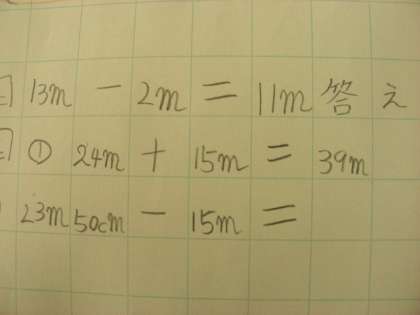 13m - 2m = 11m 答え
① 24m + 15m = 39m
23m50cm - 15m =